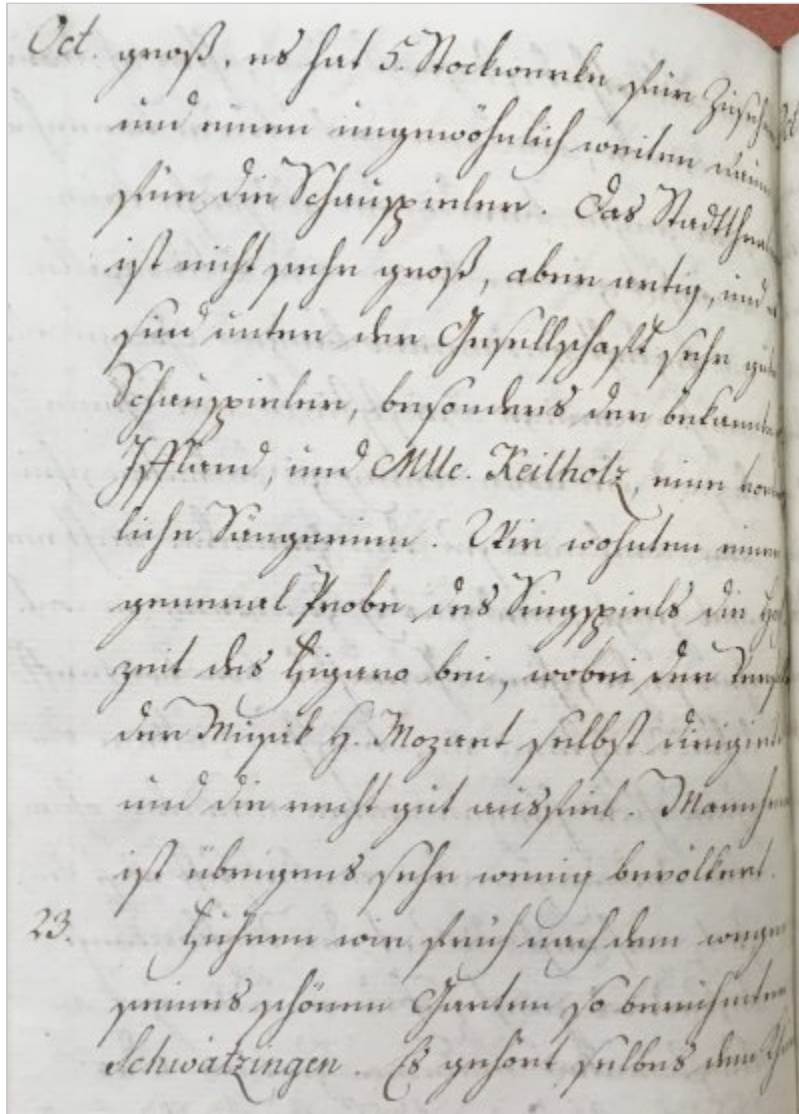 Oct. groß, es hat 5. Stockwerke für Zusch
und einen ungewöhnlich weiten raum
für die Schauspieler. Das Stadtthea
ist nicht sehr groß, aber artig, und
sind unter der Gesellschaft sehr gute
Schauspieler, besonders der bekannte
Iffland, und Mlle. Keilholz, eine vor
liche Sängerinn. Wir wohnten einer
general Probe des Singspiels die Ho
zeit des Figaro bei, wobei der Verf
der Musik H. Mozart selbst dirigirte
und die recht gut ausfiel. Mannh
ist übrigens sehr wenig bevölkert.
23. Fuhren wir früh nach dem wegen
seines schönen Garten so berühmten
Schwätzingen. Es gehört selbes dem